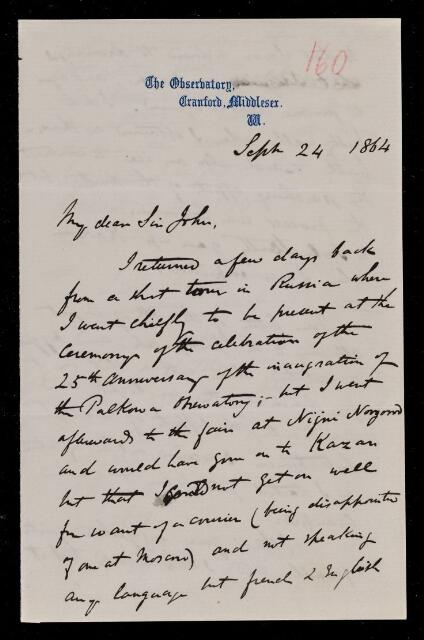 160
The Observatory,
Cranford, Middlesex.
W.
Sept 24 1864
My dear Sir John,
I returned a few days back
from a short tour in Russia where
I went chiefly to be present at the
Ceremony of the celebration of the
25th Anniversary of the inauguration of
the Pulkowa Observatory; - but I went
afterwards to the fair at Nijni Novgorod
and would have gone on to Kazan
but that I could not get on well
for want of a courier (being disappointed
of one at Moscow) and not speaking
any language but french & English